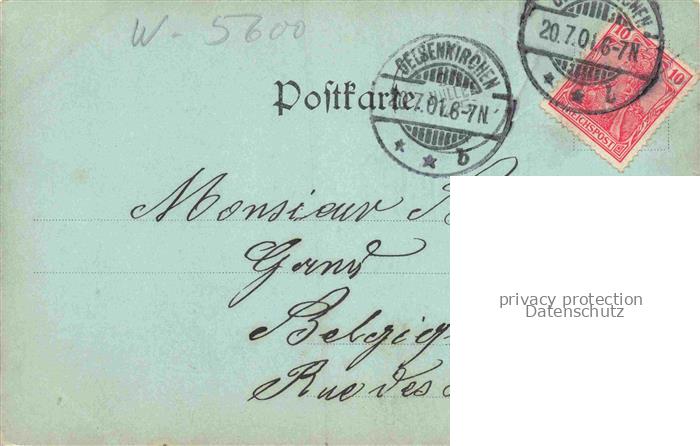 W-5600
GELSENKIRCHEN
20.7.01.6-7N.
10 10
REICHSPOST
GELSENKIRCHEN
.7.01.6-7N.
* * b
Postkarte
Monsieur
Gand
privacy protection
Datenschutz
Belgiq
Rue des